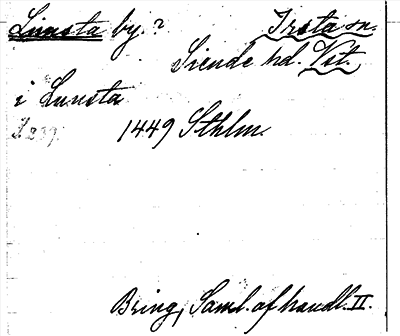 Lunsta by.? Irsta sn.
Siende hd. Vst.
i Lunsta
1449 Sthlm
Bring, Saml. af handl. II.